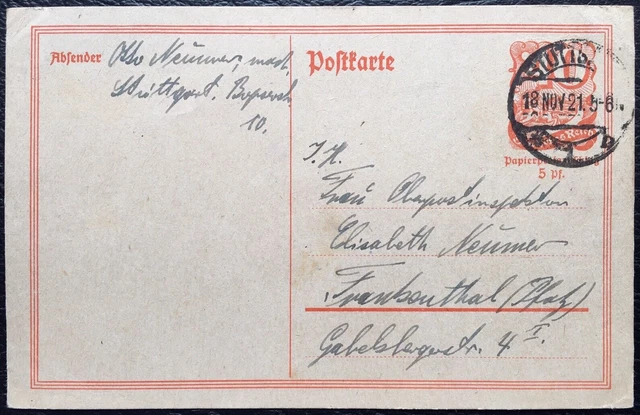 Absender
Otto Neumer, mach.
Stuttgart.
10.
Postkarte
STUTTG
18 NOV 21. 5-6
Papierpreis
5 Pf.
I. H.
Frau Oberpostinspektor
Elisabeth Neumer
Frankenthal (Pfalz)
Gabelsbergerstr. 4 I.